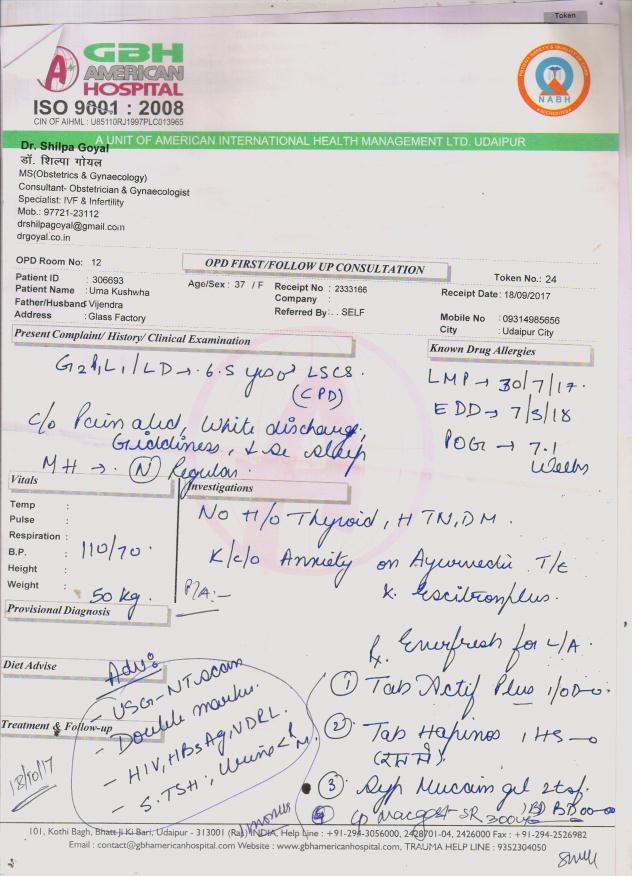 Token
GBH
AMERICAN
HOSPITAL
ISO 9001 : 2008
CIN OF AIHML : U85110RJ1997PLC013965
NABH
A UNIT OF AMERICAN INTERNATIONAL HEALTH MANAGEMENT LTD. UDAIPUR
Dr. Shilpa Goyal
डॉ. शिल्पा गोयल
MS(Obstetrics & Gynaecology)
Consultant- Obstetrician & Gynaecologist
Specialist: IVF & Infertility
Mob.: 97721-23112
drshilpagoyal@gmail.com
drgoyal.co.in
OPD Room No: 12
OPD FIRST/FOLLOW UP CONSULTATION
Token No.: 24
Patient ID : 306693
Age/Sex : 37 / F
Receipt No : 2333166
Receipt Date: 18/09/2017
Patient Name : Uma Kushwha
Company :
Father/Husband Vijendra
Referred By : . SELF
Mobile No : 09314985656
Address : Glass Factory
City : Udaipur City
Present Complaint/ History/ Clinical Examination
Known Drug Allergies
G2P1L1 / LD → 6.5 yrs LSCS.
(CPD)
LMP → 30/7/17.
EDD →
c/o Pain abd, White discharge,
Giddiness, sleep
POG → 7.1
Weeks
MH → (N) Regular.
Vitals
Investigations
Temp :
Pulse :
Respiration :
B.P. : 110/70.
Height :
Weight : 50 kg.
No H/o Thyroid, HTN, DM.
K/c/o Anxiety on Ayurvedic T/t
P/A:-
Provisional Diagnosis
Diet Advise
Treatment & Follow-up
Adv:
- USG-NT scan
- Double marker.
- HIV, HBsAg, VDRL.
- S.TSH, Urine
18/9/17
Rx Enerfresh for L/A.
1 Tab Actif Plus 1/OD
2 Tab 1 HS
3 Syp Mucaine gel 2 tsf.
SR 300
101, Kothi Bagh, Bhatt Ji Ki Bari, Udaipur - 313001 (Raj) INDIA, Help Line : +91-294-3056000, 2428701-04, 2426000 Fax : +91-294-2526982
Email : contact@gbhamericanhospital.com Website : www.gbhamericanhospital.com, TRAUMA HELP LINE : 9352304050